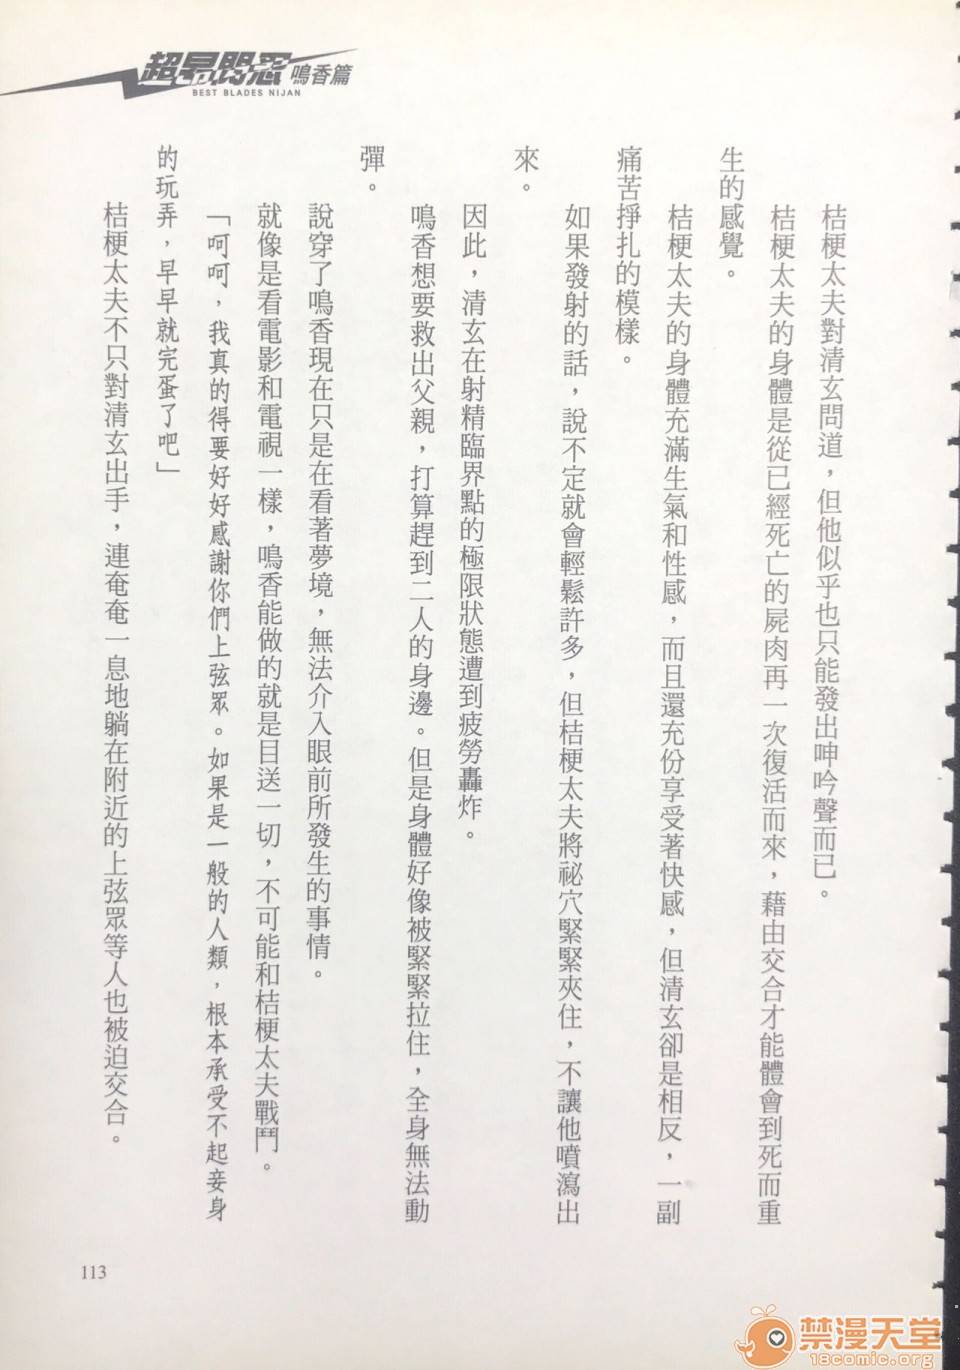 超昂閃忍 鳴香篇
BEST BLADES NIJAN
桔梗太夫對清玄問道，但他似乎也只能發出呻吟聲而已。
桔梗太夫的身體是從已經死亡的屍肉再一次復活而來，藉由交合才能體會到死而重
生的感覺。
桔梗太夫的身體充滿生氣和性感，而且還充份享受著快感，但清玄卻是相反，一副
痛苦掙扎的模樣。
如果發射的話，說不定就會輕鬆許多，但桔梗太夫將祕穴緊緊夾住，不讓他噴瀉出
來。
因此，清玄在射精臨界點的極限狀態遭到疲勞轟炸。
鳴香想要救出父親，打算趕到二人的身邊。但是身體好像被緊緊拉住，全身無法動
彈。
說穿了鳴香現在只是在看著夢境，無法介入眼前所發生的事情。
就像是看電影和電視一樣，鳴香能做的就是目送一切，不可能和桔梗太夫戰鬥。
「呵呵，我真的得要好好感謝你們上弦眾。如果是一般的人類，根本承受不起妾身
的玩弄，早早就完蛋了吧」
桔梗太夫不只對清玄出手，連奄奄一息地躺在附近的上弦眾等人也被迫交合。
113
禁漫天堂
18comic.org